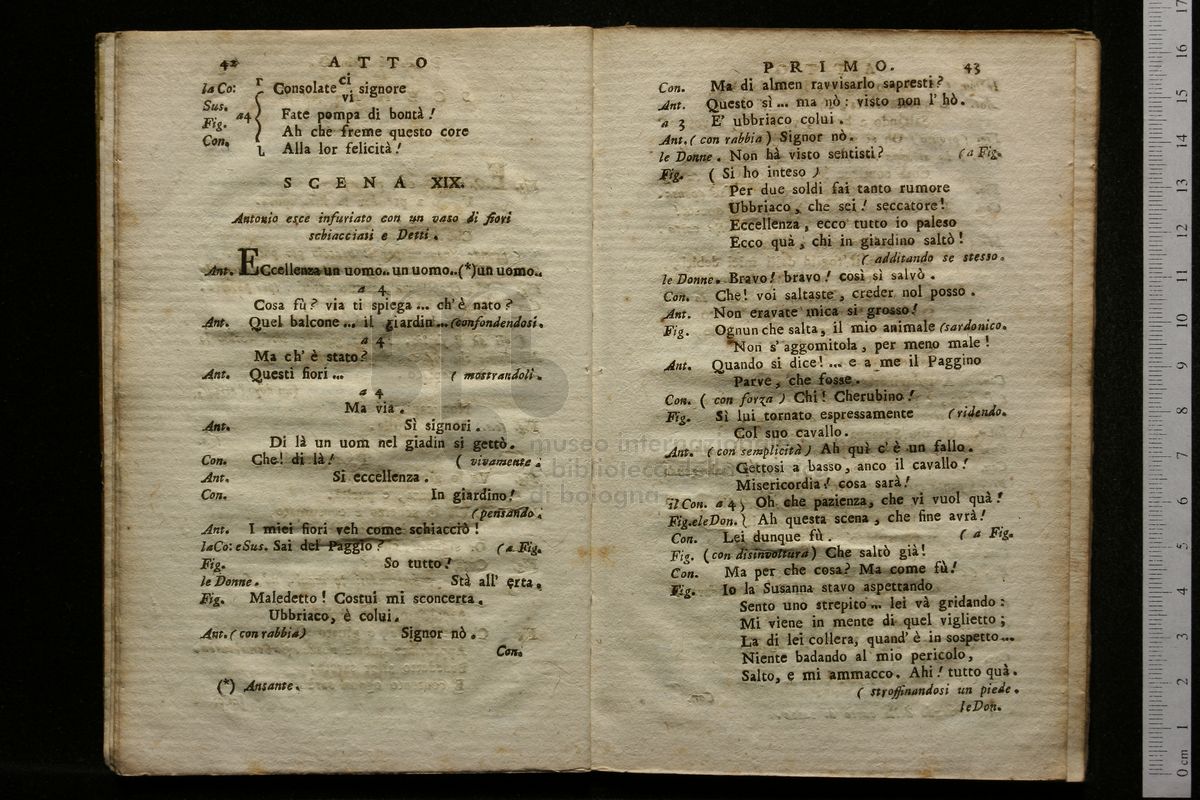 42 ATTO
la Co: Consolate ci signore
Sus. vi
a 4 Fate pompa di bontà!
Fig. Ah che freme questo core
Con. Alla lor felicità!
SCENA XIX.
Antonio esce infuriato con un vaso di fiori
schiacciati e Detti.
Ant. ECcellenza un uomo.. un uomo..(*)un uomo..
a 4
Cosa fù? via ti spiega... ch'è nato?
Ant. Quel balcone... il giardin... (confondendosi.
a 4
Ma ch'è stato?
Ant. Questi fiori... ( mostrandoli.
a 4
Ma via.
Ant. Sì signori.
Di là un uom nel giadin si gettò.
Con. Che! di là! ( vivamente.
Ant. Si eccellenza.
Con. In giardino!
(pensando.
Ant. I miei fiori veh come schiacciò!
la Co: e Sus. Sai del Paggio? (a Fig.
Fig. So tutto!
le Donne. Stà all' erta.
Fig. Maledetto! Costui mi sconcerta.
Ubbriaco, è colui.
Ant. (con rabbia) Signor nò.
Con.
(*) Ansante.
PRIMO. 43
Con. Ma di almen ravvisarlo sapresti?
Ant. Questo sì... ma nò: visto non l'hò.
a 3 E' ubbriaco colui.
Ant. (con rabbia) Signor nò.
le Donne. Non hà visto sentisti? (a Fig.
Fig. (Si ho inteso)
Per due soldi fai tanto rumore
Ubbriaco, che sei! seccatore!
Eccellenza, ecco tutto io paleso
Ecco quà, chi in giardino saltò!
( additando se stesso.
le Donne. Bravo! bravo! così sì salvò.
Con. Che! voi saltaste, creder nol posso.
Ant. Non eravate mica si grosso!
Fig. Ognun che salta, il mio animale (sardonico.
Non s'aggomitola, per meno male!
Ant. Quando si dice!... e a me il Paggino
Parve, che fosse.
Con. ( con forza ) Chi! Cherubino!
Fig. Sì lui tornato espressamente (ridendo.
Col suo cavallo.
Ant. (con semplicità) Ah quì c'è un fallo.
Gettosi a basso, anco il cavallo!
Misericordia! cosa sarà!
il Con. a 4 } Oh che pazienza, che vi vuol quà!
Fig. e le Don. } Ah questa scena, che fine avrà!
Con. Lei dunque fù. ( a Fig.
Fig. (con disinvoltura) Che saltò già!
Con. Ma per che cosa? Ma come fù!
Fig. Io la Susanna stavo aspettando
Sento uno strepito... lei và gridando:
Mi viene in mente di quel viglietto;
La di lei collera, quand'è in sospetto...
Niente badando al mio pericolo,
Salto, e mi ammacco. Ahi! tutto quà.
( stroffinandosi un piede.
le Don.
museo internazionale
e biblioteca della
di bologna